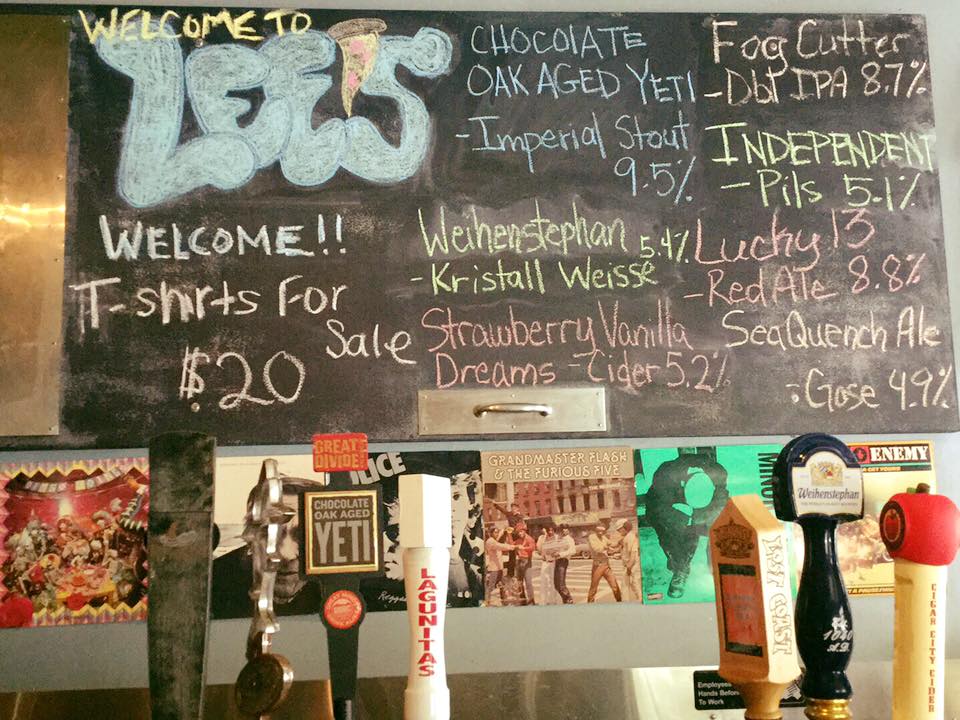 WELCOME TO
LEE'S
WELCOME!!
T-shirts For
Sale
$20
CHOCOLATE
OAK AGED YETI
-Imperial Stout
9.5%
Weihenstephan 5.4%
-Kristall Weisse
Strawberry Vanilla
Dreams -Cider 5.2%
Fog Cutter
-Dbl IPA 8.7%
INDEPENDENT
-Pils 5.1%
Lucky 13
-Red Ale 8.8%
SeaQuench Ale
-Gose 4.9%
GREAT
DIVIDE
CHOCOLATE
OAK AGED
YETI
LAGUNITAS
GRANDMASTER FLASH
& THE FURIOUS FIVE
ENEMY
Weihenstephan
1040
A.D.
CIGAR CITY CIDER
Employees
Hands Before
To Work